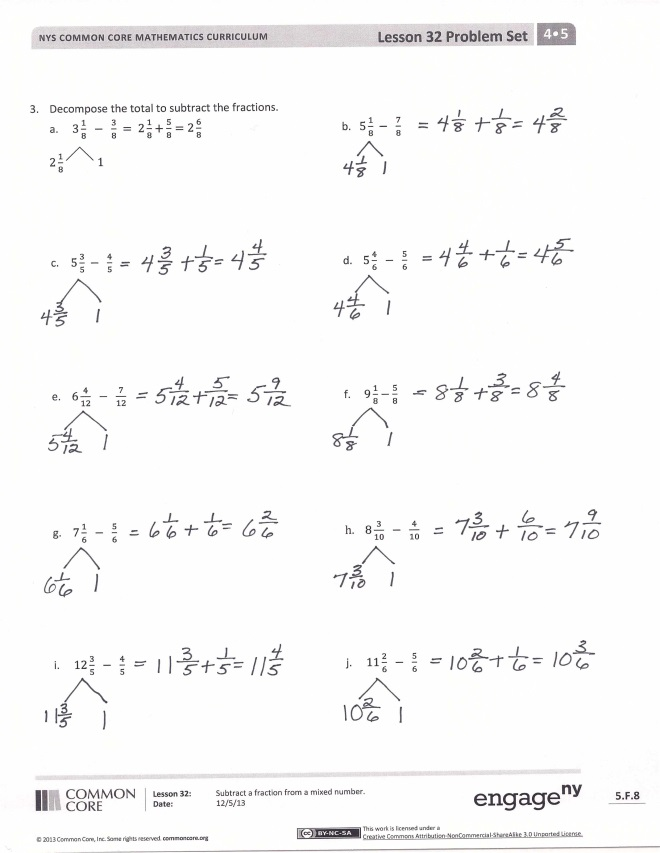 NYS COMMON CORE MATHEMATICS CURRICULUM Lesson 32 Problem Set 4•5
3. Decompose the total to subtract the fractions.
a. 3 1/8 − 3/8 = 2 1/8 + 5/8 = 2 6/8
2 1/8 1
b. 5 1/8 − 7/8 = 4 1/8 + 1/8 = 4 2/8
4 1/8 1
c. 5 3/5 − 4/5 = 4 3/5 + 1/5 = 4 4/5
4 3/5 1
d. 5 4/6 − 5/6 = 4 4/6 + 1/6 = 4 5/6
4 4/6 1
e. 6 4/12 − 7/12 = 5 4/12 + 5/12 = 5 9/12
5 4/12 1
f. 9 1/8 − 5/8 = 8 1/8 + 3/8 = 8 4/8
8 1/8 1
g. 7 1/6 − 5/6 = 6 1/6 + 1/6 = 6 2/6
6 1/6 1
h. 8 3/10 − 4/10 = 7 3/10 + 6/10 = 7 9/10
7 3/10 1
i. 12 3/5 − 4/5 = 11 3/5 + 1/5 = 11 4/5
11 3/5 1
j. 11 2/6 − 5/6 = 10 2/6 + 1/6 = 10 3/6
10 2/6 1
COMMON CORE
Lesson 32: Subtract a fraction from a mixed number.
Date: 12/5/13
engage ny
5.F.8
© 2013 Common Core, Inc. Some rights reserved. commoncore.org
CC BY-NC-SA
This work is licensed under a
Creative Commons Attribution-NonCommercial-ShareAlike 3.0 Unported License.